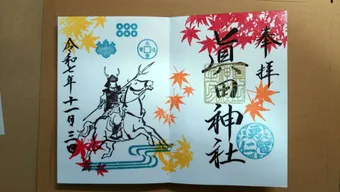 奉拝
眞田神社
令和七年十一月三日